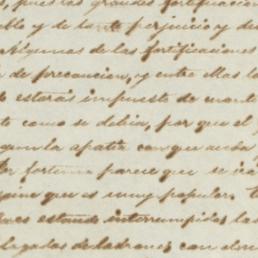 , pues las grandes fortificacion
blo y de tanto perjuicio y de
Algunas de las fortificaciones
de precaucion, y entre ellas l
estarás impuesto de cuanto
to como se debia, por que el
segun la apatia con que anda
Por fortuna parece que se
que es muy popular. t
estando interrumpidas las
llegadas de ladrones, con el